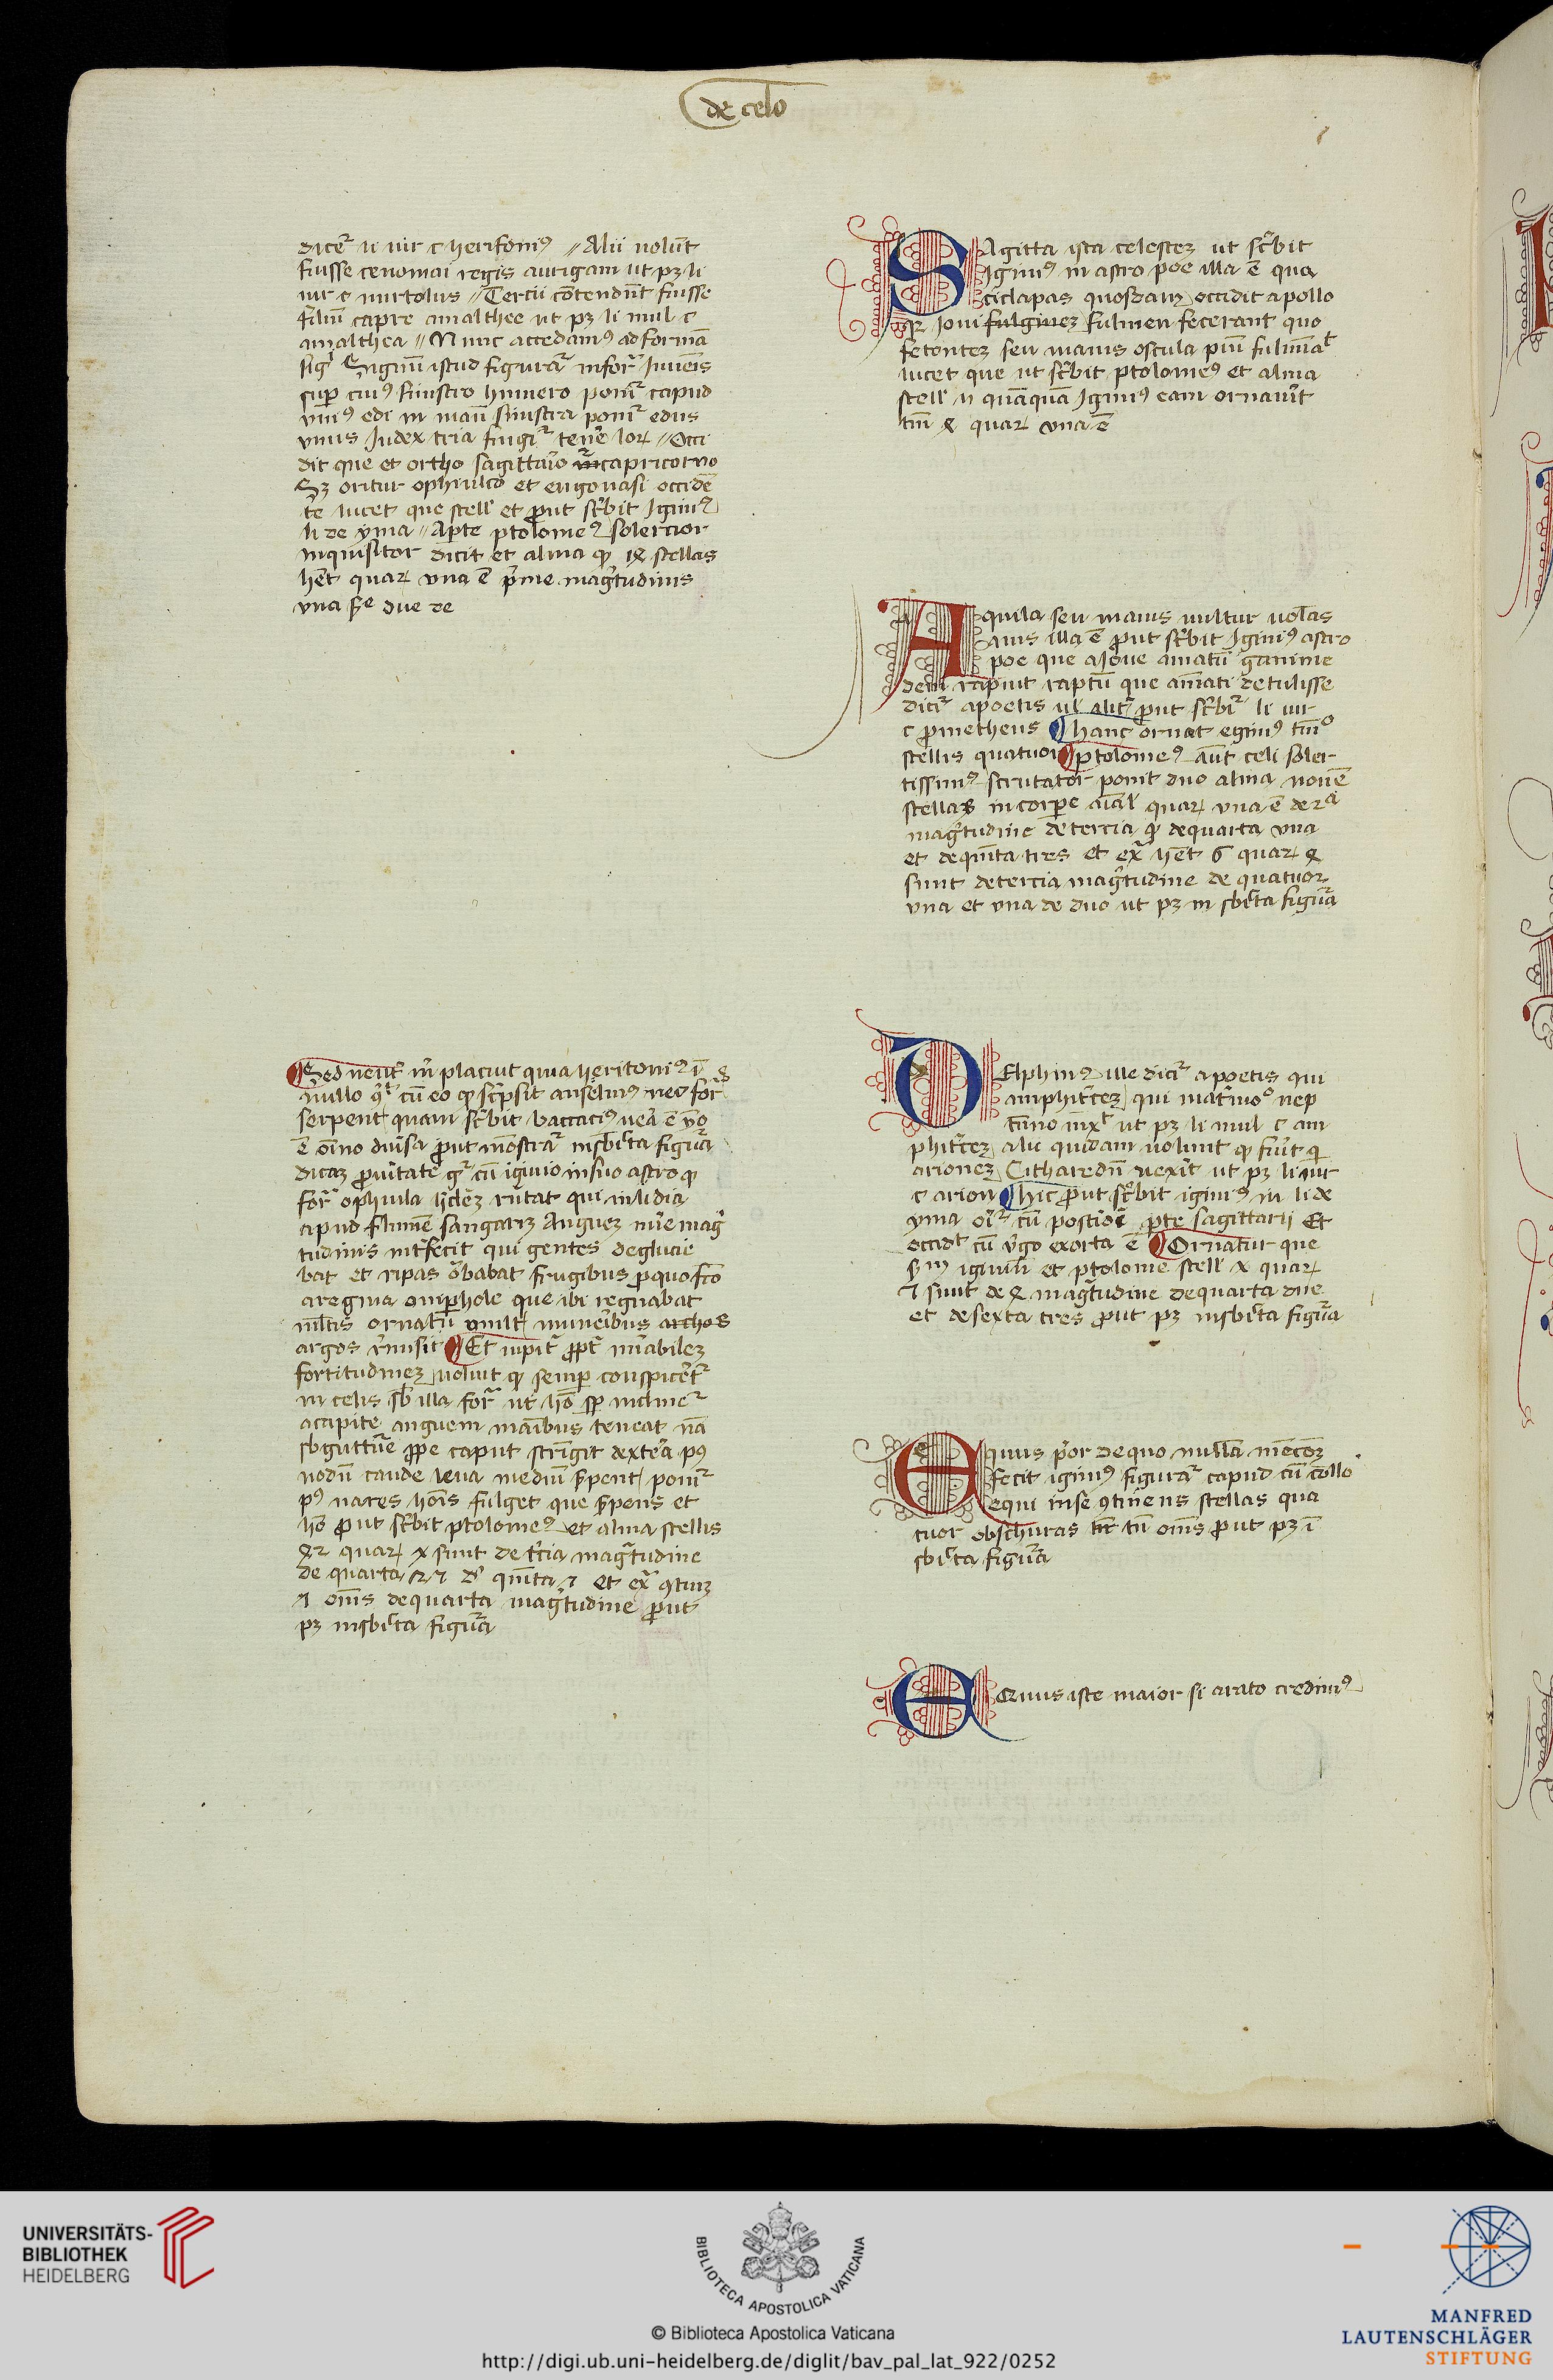 de celo
dicer̃ li iiii c herifoniꝰ // Alii nolũt
fuisse cenomai regis aurigam ut pꝫ li
iiii c mirtolus // Tercii cõtendũt fuisse
filiũ capre amalthee ut pꝫ li mul c
amalthea // Nunc accedamꝰ ad formã
Signũ istud figurat̃ in for̃ Iuuẽis
sup̱ cuiꝰ sinistro humero ponit̃ capud
uniꝰ edi in manũ sinistra ponit̃ edus
unus Iudex tria fingit̃ tenẽ lorꝝ // Occi
dit que et ortho sagittario capricorno
Sꝫ oritur ophiulco et engonasi occidẽ
te lucet que stell' et ꝓut sc̃bit Iginiꝰ
li de yma // Aꝑte ptolomeꝰ solercior
inquisitor dicit et alma ꝙ 14 stellas
hẽt quarꝝ una ẽ p̃me mag̃tudinis
una sẽ due de
Sed neut̃ m̃ placuit quia heritoniꝰ ĩ
nullo cũ eo ꝙ sc̃psit anselmus nec for̃
serpent quam sc̃bit baccaciꝰ
ẽ oĩno diũsa ꝓut mõstrat̃ in sb̃ic̃ta figur̃a
dicaꝫ ꝓ ũitate cũ iginio in suo astro ꝙ
for̃ ophiula qui in lidia
apud flumẽ sangariꝫ Angueꝫ mag̃
tudinis int̃fecit qui gentes deglucie
bat et ripas õbabat frugibus ꝓ quo fc̃o
a regina omphole que ibi regnabat
ml̃tis ornatũ muneribus archos
argos r̃misit Et iupit̃ ꝓpt̃ mĩabileꝫ
fortitudineꝫ uoluit ꝙ semꝑ conspicer̃t̃
in celis sb̃ illa for̃ ut hõ sꝑ
a capite anguem manibus teneat nã
sb guttur̃e ꝓpe caput stringit dextera pꝰ
nodũ caude leua mediũ s̃pentꝫ ponit̃
pꝰ nares hoĩs fulget que s̃pens et
hõ ꝓut sc̃bit ptolomeꝰ et alma stellis
42 quarꝝ x sunt de t̃cia mag̃tudine
de quarta 27 d' quĩta 7 et ex̃ 9tinꝫ
7 om̃s de quarta mag̃tudine ꝓut
pꝫ in sb̃ic̃ta figur̃a
Sagitta ista celesteꝫ ut sc̃bit
Iginiꝰ in astro poe illa ẽ qua
ciclapas quosdam occidit apollo
qr Ioui fulgineꝫ fulmen fecerant quo
fetonteꝫ seu manis oscula piũ
lucet que ut sc̃bit ptolomeꝰ et alma
stell' quãquã Iginiꝰ eam ornauĩt
tm̃ 4 quarꝝ una ẽ
Aquila seu manis uultur uolãs
auis illa ẽ ꝓut sc̃bit Iginiꝰ astro
poe que a Ioue amatũ ganime
dem rapuit raptũ que amati detulisse
dicit̃ a poetis ul' alit̃ ꝓut sc̃bit̃ li iiii
c ꝓmetheus hanc ornat eginiꝰ tm̃o
stellis quatuor ptolomeꝰ aũt celi soler
tissimꝰ scrutator ponit duo alma nouẽ
stellas in corꝑe aĩal' quarꝝ una ẽ de 2a
mag̃tudine de tercia ꝙ de quarta una
et de quĩta tres et ex̃ hẽt 6 quarꝝ 4
sunt de tercia mag̃tudine de quatuor
una et una de duo ut pꝫ in sb̃ic̃ta figur̃a
Delphinꝰ ille dicit̃ a poetis qui
amphitr̃ceꝫ qui matĩio nep
tũno ĩnxt̃ ut pꝫ li mul c am
phitr̃ceꝫ alii quidam uolunt ꝙ fuĩt qi
arioneꝫ Citharedũ uexit ut pꝫ li iiii
c arion hic ꝓut sc̃bit iginiꝰ in li de
yma oĩt̃ cũ post̃ioĩ ꝑte sagittarii Et
occidt̃ cũ ũgo exorta ẽ Ornatur que
s̃m iginiũ et ptolomẽ stell' x quarꝝ
7 sunt de 4 mag̃tudine de quarta due
et de sexta tres ꝓut pꝫ in sb̃ic̃ta figur̃a
Equus p̃or de quo nulla mẽcõeꝫ
fecit iginiꝰ figurat̃ capud cũ collo
equi in se 9tinens stellas qua
tuor obschuras tm̃ oĩns ꝓut pꝫ ĩ
sb̃ic̃ta figur̃a
Equus iste maior si arato credimꝰ
UNIVERSITÄTS-
BIBLIOTHEK
HEIDELBERG
BIBLIOTECA APOSTOLICA VATICANA
© Biblioteca Apostolica Vaticana
http://digi.ub.uni-heidelberg.de/diglit/bav_pal_lat_922/0252
MANFRED
LAUTENSCHLÄGER
STIFTUNG